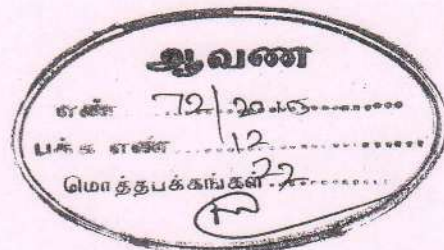 ஆவண
எண் 72/2015
பக்க எண் 12
மொத்தபக்கங்கள் 22